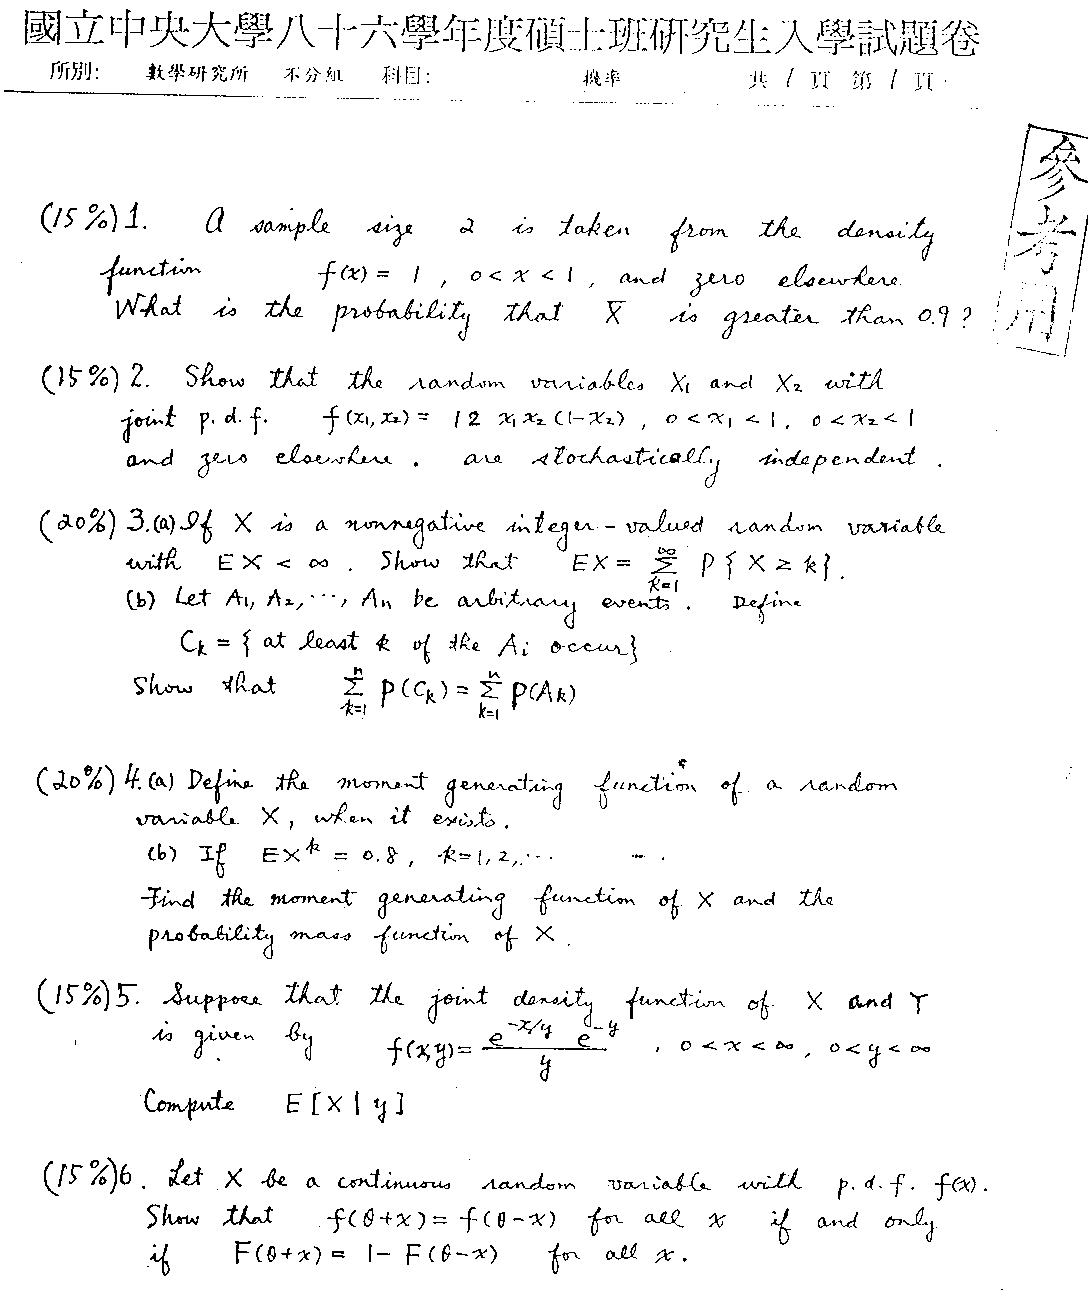 國立中央大學八十六學年度碩士班研究生入學試題卷
所別: 數學研究所 不分組 科目: 機率 共 1 頁 第 1 頁
參考用
(15%) 1. A sample size 2 is taken from the density
function f(x) = 1 , 0 < x < 1 , and zero elsewhere.
What is the probability that X̄ is greater than 0.9 ?
(15%) 2. Show that the random variables X₁ and X₂ with
joint p.d.f. f(x₁,x₂) = 12 x₁x₂(1-x₂) , 0 < x₁ < 1, 0 < x₂ < 1
and zero elsewhere . are stochastically independent .
(20%) 3.(a) If X is a nonnegative integer-valued random variable
with EX < ∞ . Show that EX = ∑_{k=1}^{∞} P{X ≥ k}.
(b) Let A₁, A₂, ..., Aₙ be arbitrary events . Define
Cₖ = { at least k of the Aᵢ occur}
Show that ∑_{k=1}^{n} P(Cₖ) = ∑_{k=1}^{n} P(Aₖ)
(20%) 4.(a) Define the moment generating function of a random
variable X, when it exists.
(b) If EXᵏ = 0.8 , k=1,2,...
Find the moment generating function of X and the
probability mass function of X.
(15%) 5. Suppose that the joint density function of X and Y
is given by f(x,y) = \frac{e^{-x/y} e^{-y}}{y} , 0 < x < ∞ , 0 < y < ∞
Compute E[X | y]
(15%) 6. Let X be a continuous random variable with p.d.f. f(x).
Show that f(θ+x) = f(θ-x) for all x if and only
if F(θ+x) = 1- F(θ-x) for all x.